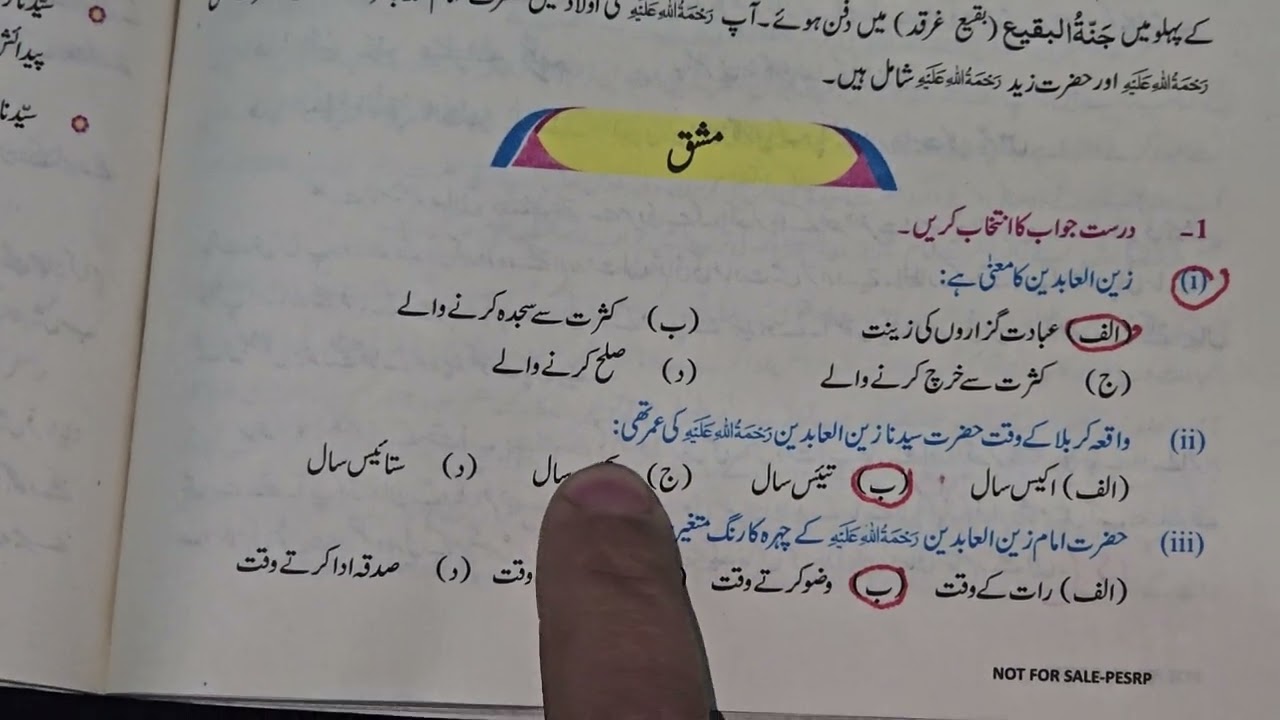 کے پہلو میں جَنّةُ البقیع (بقیع غرقد) میں دفن ہوئے۔ آپ رَحْمَةُ اللهِ عَلَيْهِ کی اولاد میں حضرت امام
رَحْمَةُ اللهِ عَلَيْهِ اور حضرت زید رَحْمَةُ اللهِ عَلَيْهِ شامل ہیں۔
مشق
1- درست جواب کا انتخاب کریں۔
(i) زین العابدین کا معنیٰ ہے:
(الف) عبادت گزاروں کی زینت (ب) کثرت سے سجدہ کرنے والے
(ج) کثرت سے خرچ کرنے والے (د) صلح کرنے والے
(ii) واقعہ کربلا کے وقت حضرت سیدنا زین العابدین رَحْمَةُ اللهِ عَلَيْهِ کی عمر تھی:
(الف) اکیس سال (ب) تیئس سال (ج) سال (د) ستائیس سال
(iii) حضرت امام زین العابدین رَحْمَةُ اللهِ عَلَيْهِ کے چہرہ کا رنگ متغیر
(الف) رات کے وقت (ب) وضو کرتے وقت وقت (د) صدقہ ادا کرتے وقت
NOT FOR SALE-PESRP
پیدائش